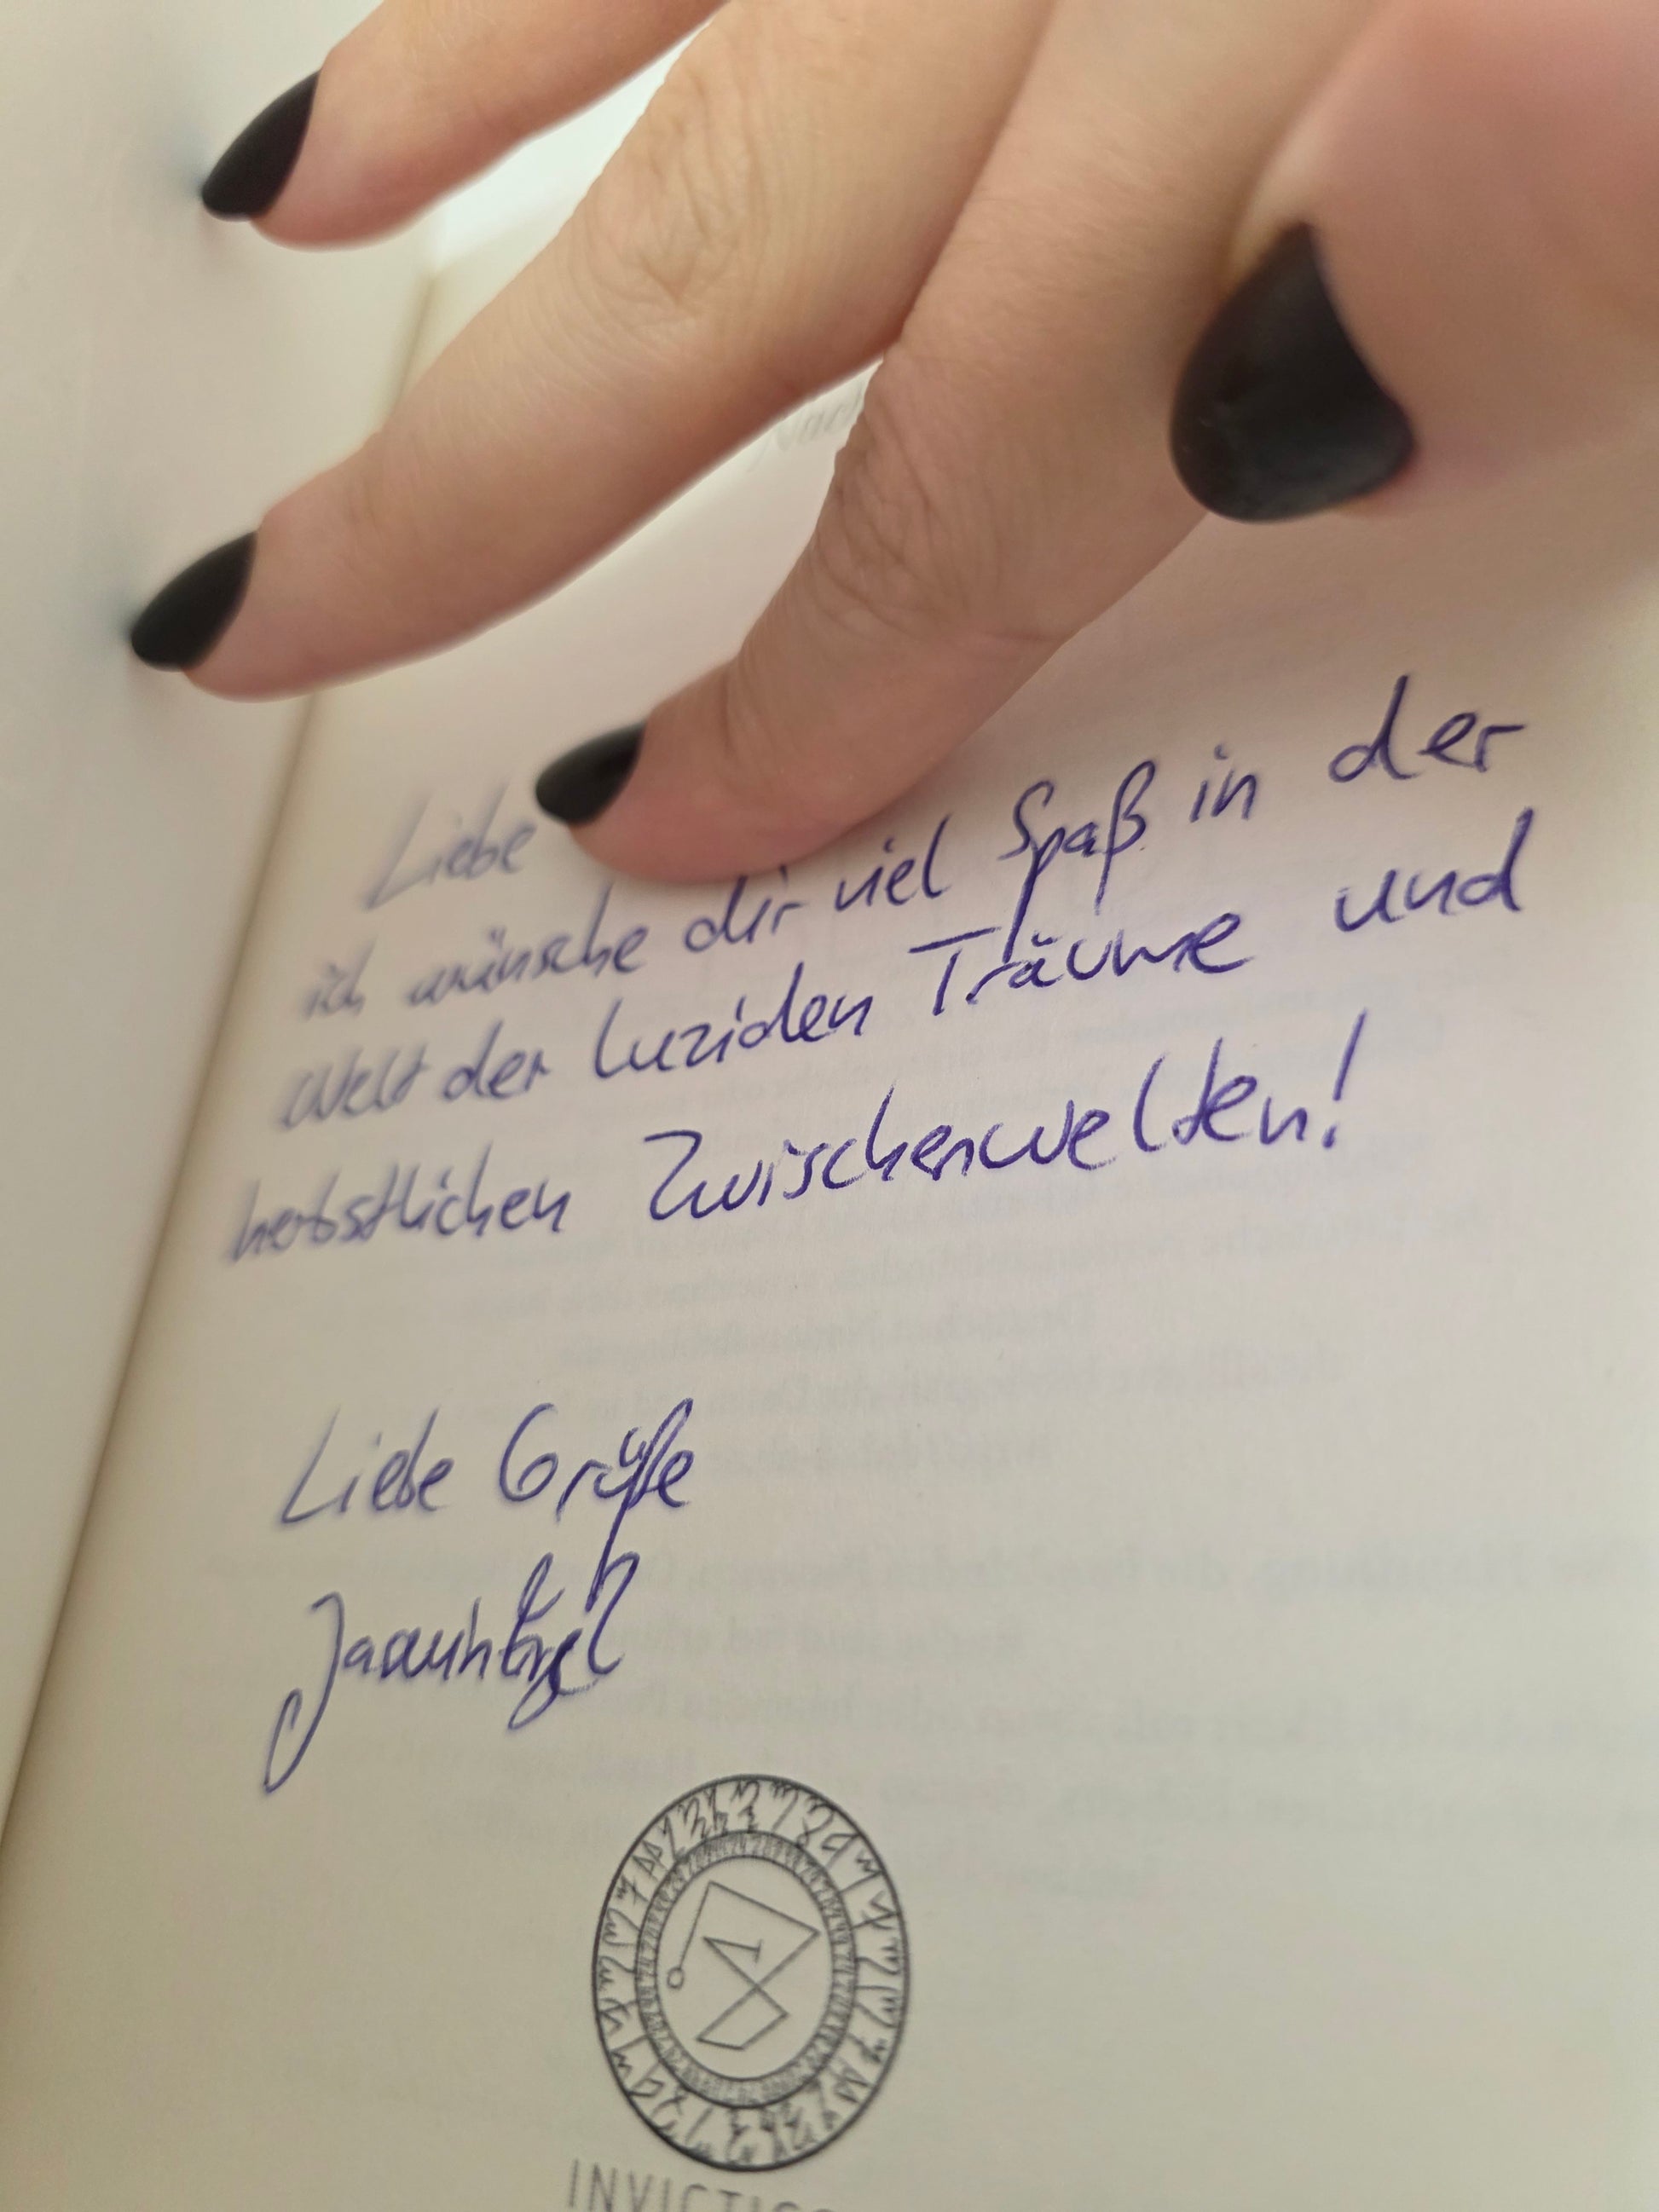 Liebe
ich wünsche dir viel Spaß in der
Welt der luziden Träume und
herbstlichen Zwischenwelten!
Liebe Grüße